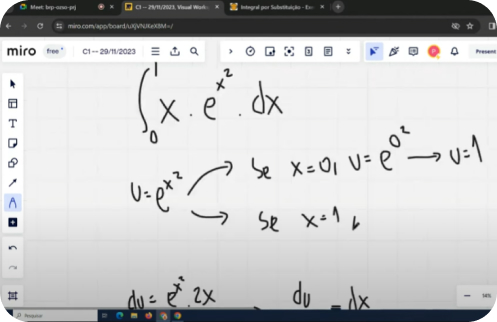 Meet: brp-szso-prj
C1 -- 29/11/2023, Visual Work
Integral por Substituição - Ex
miro.com/app/board/uXjVNXeX8M=/
miro free C1 -- 29/11/2023 Present
∫₀¹ x · e^x² · dx
U = e^x²
se x=0, U= e^0² → U=1
se x=1,
du = e^x² · 2x
du = dx
14%
Pesquisar